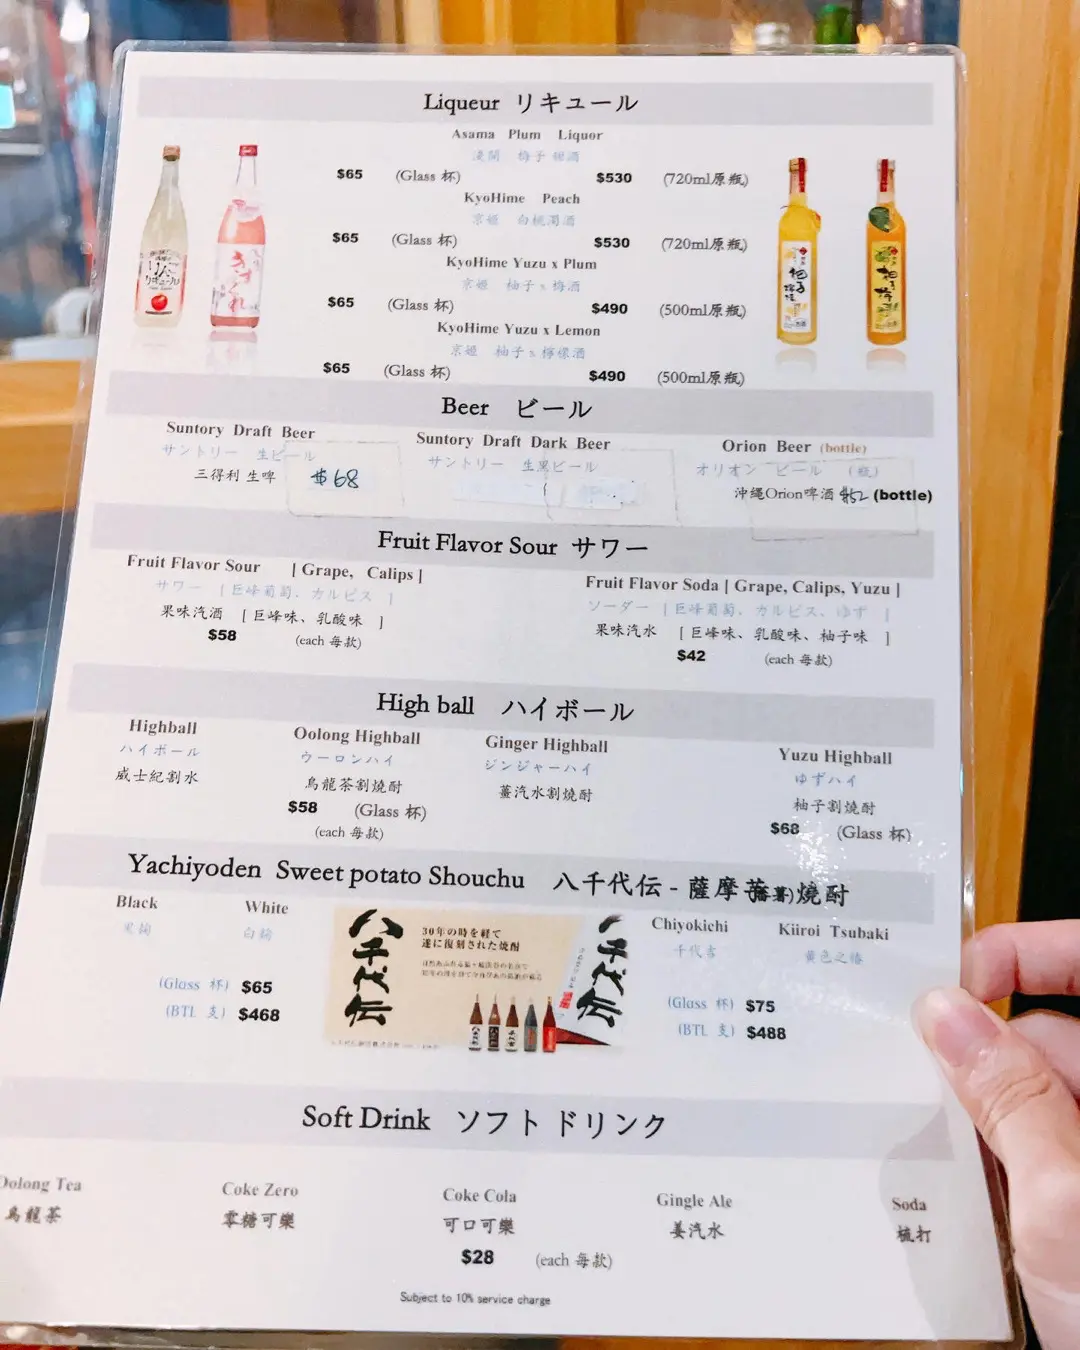 Liqueur リキュール
Asama Plum Liquor
$65 (Glass 杯) $530 (720ml原瓶)
KyoHime Peach
京姫 白桃濁酒
$65 (Glass 杯) $530 (720ml原瓶)
KyoHime Yuzu x Plum
京姫 柚子x梅酒
$65 (Glass 杯) $490 (500ml原瓶)
KyoHime Yuzu x Lemon
京姫 柚子x檸檬酒
$65 (Glass 杯) $490 (500ml原瓶)
Beer ビール
Suntory Draft Beer
サントリー 生ビール
三得利 生啤 $68
Suntory Draft Dark Beer
サントリー 生黒ビール
Orion Beer (bottle)
オリオン ビール (瓶)
沖縄Orion啤酒 $52 (bottle)
Fruit Flavor Sour サワー
Fruit Flavor Sour | Grape, Calips ]
サワー [ 巨峰葡萄、カルピス ]
果味汽酒 [ 巨峰味、乳酸味 ]
$58 (each 每款)
Fruit Flavor Soda [ Grape, Calips, Yuzu ]
ソーダー [ 巨峰葡萄、カルピス、ゆず ]
果味汽水 [ 巨峰味、乳酸味、柚子味 ]
$42 (each 每款)
High ball ハイボール
Highball
ハイボール
威士紀割水
Oolong Highball
ウーロンハイ
烏龍茶割燒酎
$58 (Glass 杯)
(each 每款)
Ginger Highball
ジンジャーハイ
薑汽水割燒酎
Yuzu Highball
ゆずハイ
柚子割燒酎
$68 (Glass 杯)
Yachiyoden Sweet potato Shouchu 八千代伝 - 薩摩蕃薯)燒酎
Black
黒麹
White
白麹
(Glass 杯) $65
(BTL 支) $468
八千代伝
30年の時を経て
遂に復刻された焼酎
八千代伝
Chiyokichi
千代吉
Kiiroi Tsubaki
黄色之椿
(Glass 杯) $75
(BTL 支) $488
Soft Drink ソフト ドリンク
Oolong Tea
烏龍茶
Coke Zero
零糖可樂
Coke Cola
可口可樂
Gingle Ale
姜汽水
Soda
梳打
$28 (each 每款)
Subject to 10% service charge